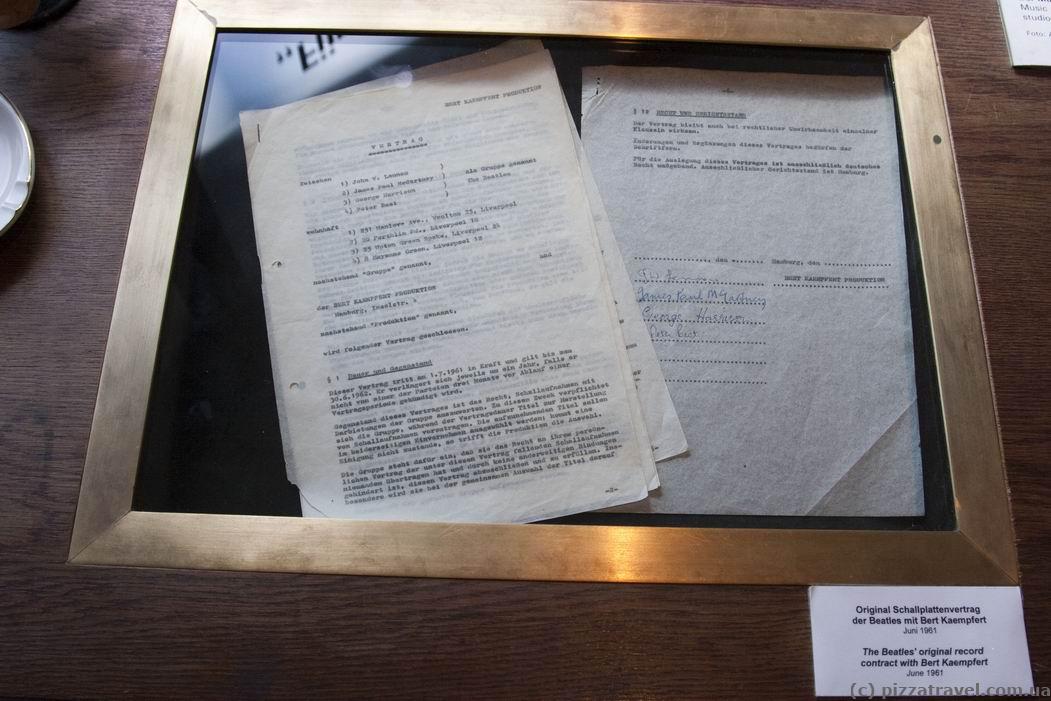 BERT KAEMPFERT PRODUKTION
VERTRAG
Zwischen
1) John W. Lennon )
2) James Paul McCartney ) als Gruppe genannt
3) George Harrison ) The Beatles
4) Peter Best )
wohnhaft
1) 251 Menlove Ave., Woolton 25, Liverpool
2) 20 Forthlin Rd., Liverpool 18
3) 25 Upton Green Speke, Liverpool 24
4) 8 Haymans Green, Liverpool 12
nachstehend "Gruppe" genannt,
und
der BERT KAEMPFERT PRODUKTION
Hamburg, Inselstr. 4
nachstehend "Produktion" genannt,
wird folgender Vertrag geschlossen.
§ 1 Dauer und Gegenstand
Dieser Vertrag tritt am 1.7.1961 in Kraft und gilt bis zum
30.6.1962. Er verlängert sich jeweils um ein Jahr, falls er
nicht von einer der Parteien drei Monate vor Ablauf einer
Vertragsperiode gekündigt wird.
Gegenstand dieses Vertrages ist das Recht, Schallaufnahmen mit
Darbietungen der Gruppe auszuwerten. Zu diesem Zweck verpflichtet
sich die Gruppe, während der Vertragsdauer Titel zur Herstellung
von Schallaufnahmen vorzutragen. Die aufzunehmenden Titel sollen
im beiderseitigen Einvernehmen ausgewählt werden; kommt eine
Einigung nicht zustande, so trifft die Produktion die Auswahl.
Die Gruppe steht dafür ein, daß sie das Recht an ihrem persön-
lichen Vortrag der unter diesen Vertrag fallenden Schallaufnahmen
niemandem übertragen hat und durch keine anderweitigen Bindungen
gehindert ist, diesen Vertrag abzuschließen und zu erfüllen. Ins-
besondere wird sie bei der gemeinsamen Auswahl der Titel darauf
-2-
RECHT UND GERICHTSSTAND
Der Vertrag bleibt auch bei rechtlicher Unwirksamkeit einzelner
Klauseln wirksam.
Änderungen und Ergänzungen dieses Vertrages bedürfen der
Schriftform.
Für die Auslegung dieses Vertrages ist ausschließlich deutsches
Recht maßgebend. Ausschließlicher Gerichtsstand ist Hamburg.
, den Hamburg, den
BERT KAEMPFERT PRODUKTION
James Paul McCartney
George Harrison
Peter Best
Music
studio
Foto:
Original Schallplattenvertrag
der Beatles mit Bert Kaempfert
Juni 1961
The Beatles' original record
contract with Bert Kaempfert
June 1961
(c) pizzatravel.com.ua